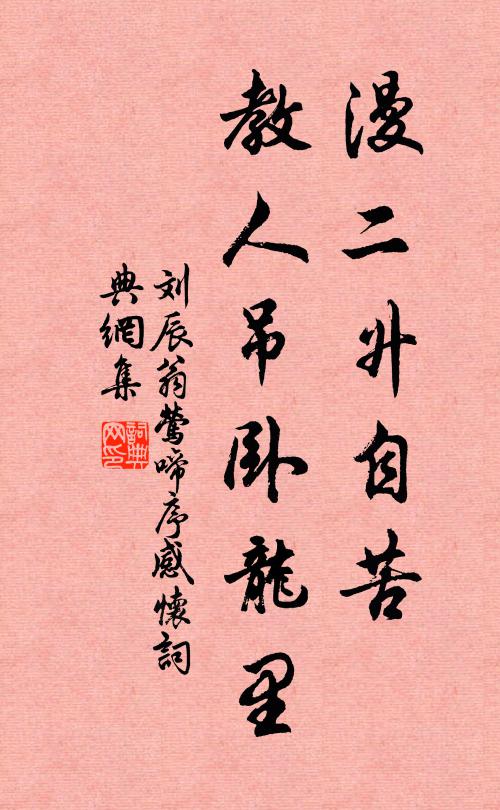 漫二升自苦
教人吊卧龍里
刘辰翁鶯啼序感懷詞
典網集
詞典
网印